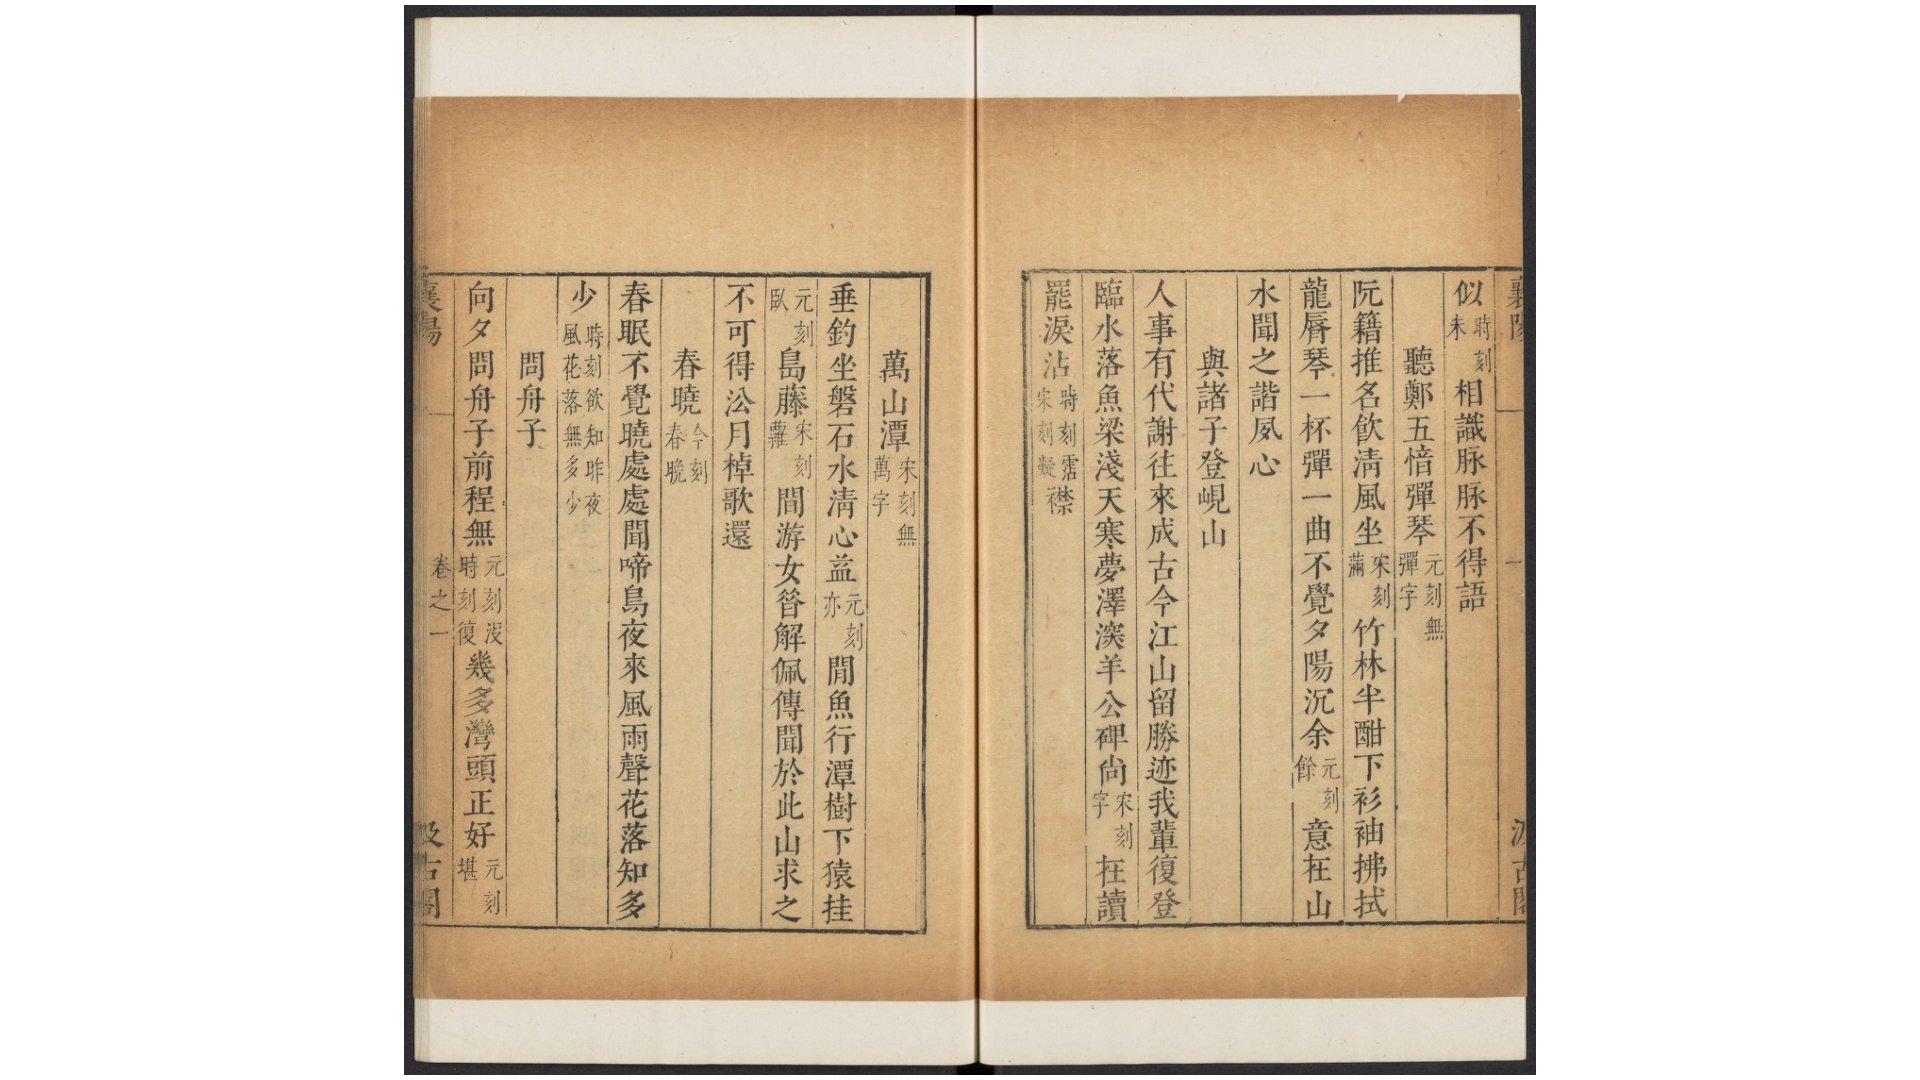 襄陽
汲古閣
似時刻未相識脉脉不得語
聽鄭五愔彈琴元刻無彈字
阮籍推名飲淸風坐宋刻滿竹林半酣下衫袖拂拭
龍脣琴一杯彈一曲不覺夕陽沉余元刻餘意在山
水聞之諧夙心
與諸子登峴山
人事有代謝往來成古今江山留勝迹我輩復登
臨水落魚梁淺天寒夢澤深羊公碑尙宋刻字在讀
罷淚沾時刻霑宋刻凝襟
萬山潭宋刻無萬字
垂釣坐磐石水淸心益元刻亦閒魚行潭樹下猿挂
元刻臥島藤宋刻蘿間游女昝解佩傳聞於此山求之
不可得沿月棹歌還
春曉今刻春晚
春眠不覺曉處處聞啼鳥夜來風雨聲花落知多
少時刻欲知昨夜風花落無多少
問舟子
向夕問舟子前程無元刻沒時刻復幾多灣頭正好元刻堪
襄陽
卷之一
汲古閣